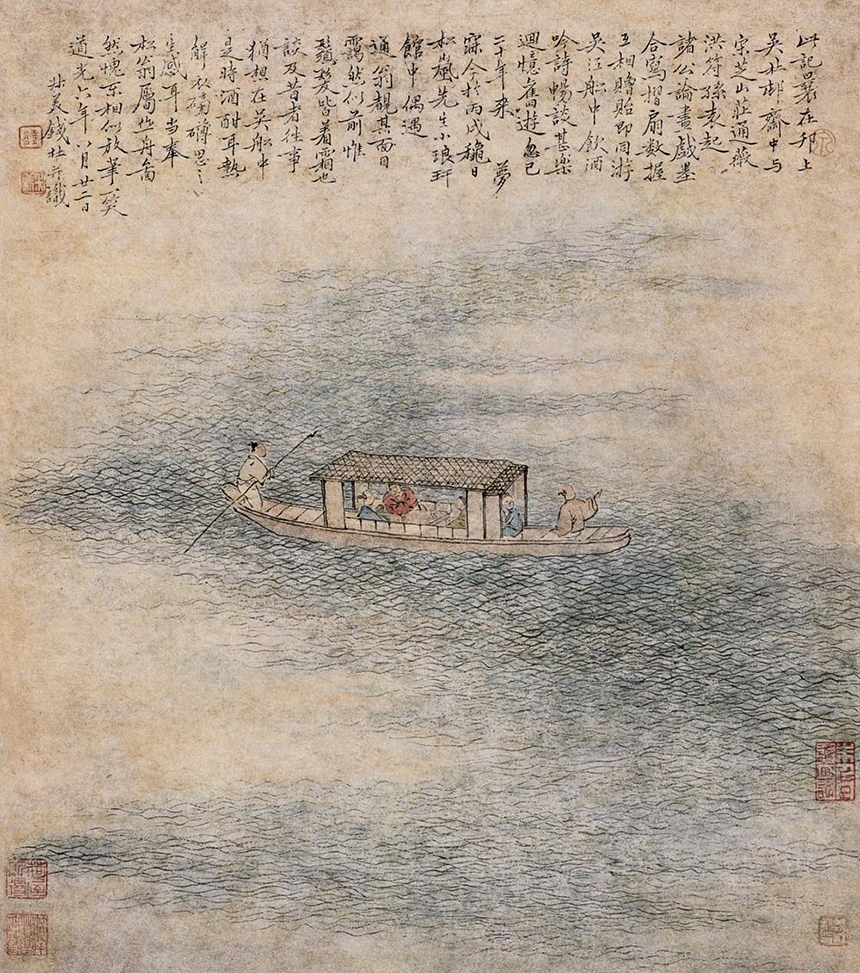 此記曩在邗上
吳杜邨齋中与
宋芝山莊通薇
洪符孫袁起
諸公論畫戲墨
合寫摺扇數握
互相贈貽即同游
吳江船中飲酒
吟詩暢談甚樂
迴憶舊遊忽已
二十年来 夢
寐今於丙戌龝日
松嵐先生小琅玕
館中偶遇
通翁覩其面目
靄然似前惟
鬚髮皆着霜也
談及昔者往事
猶想在吳船中
是時酒酣耳熱
解衣磅礴思之
生感耳當奉
松翁屬舟
然愧不相似放筆一笑
道光六年八月廿二日
叔美錢杜并識